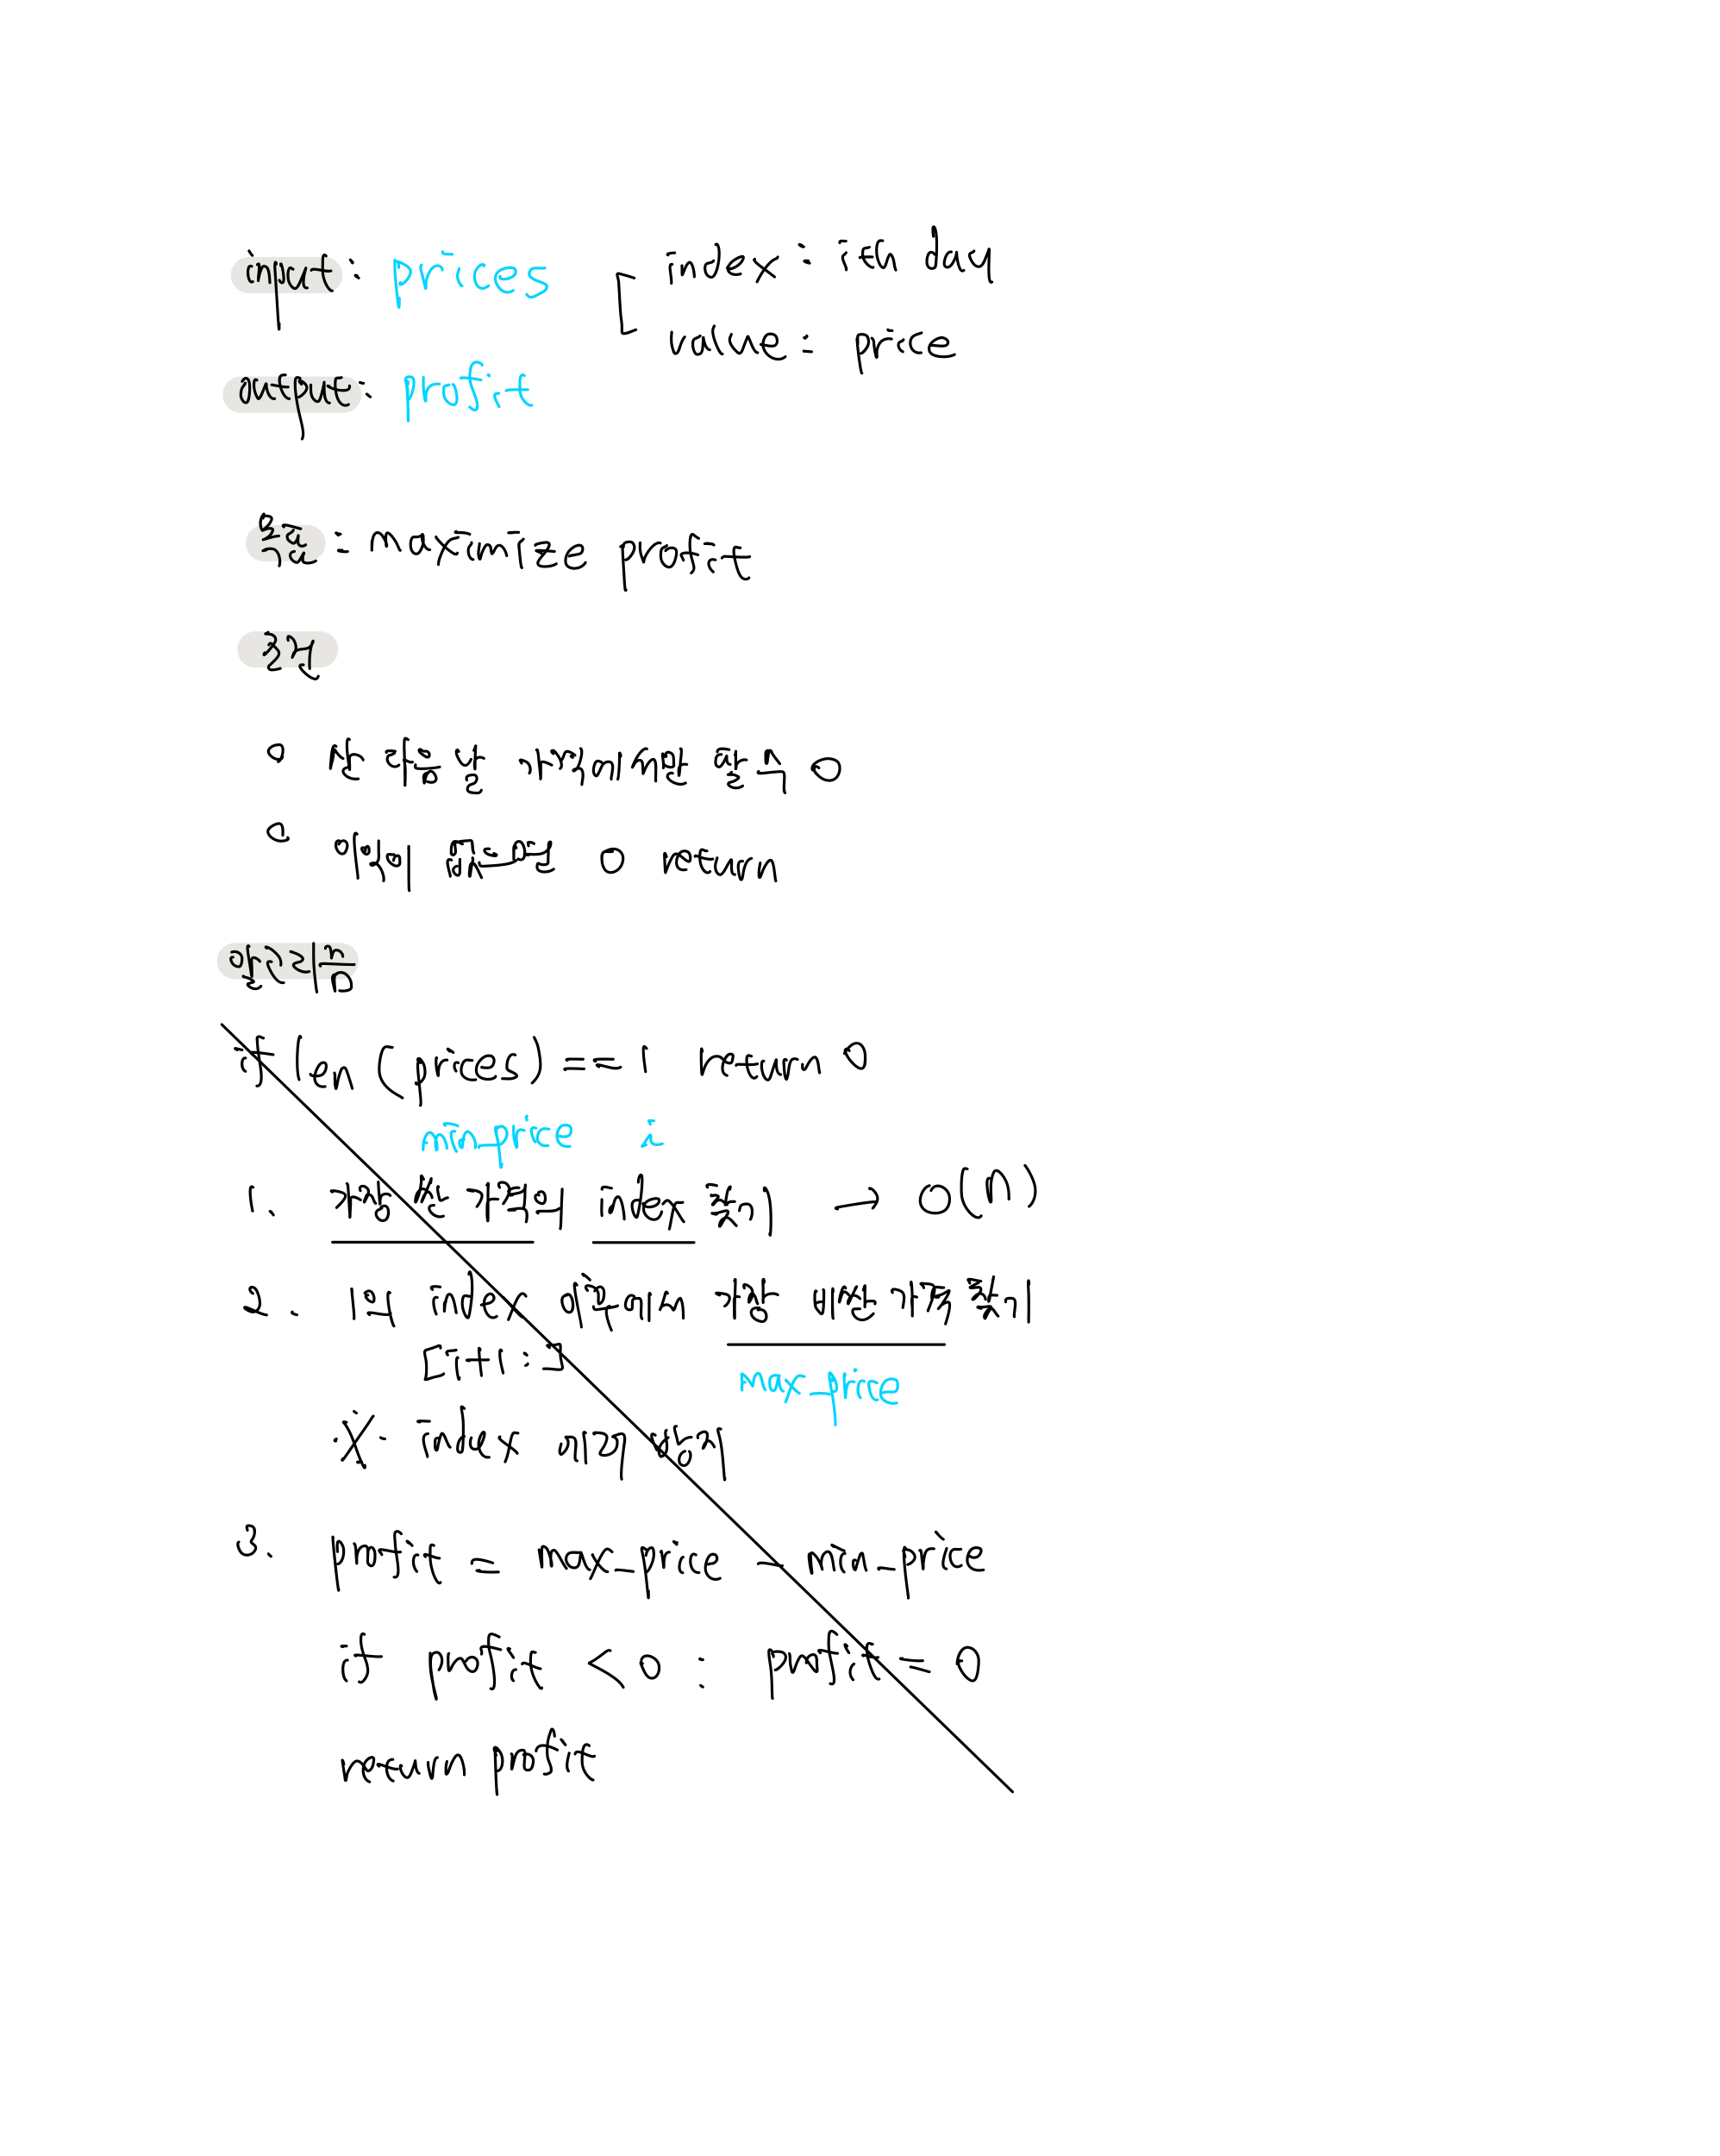 input: prices
index: ith day
value: price
output: profit
목표: maximize profit
조건
산 다음 날 가격에서만 팔 수 O
이익이 없으면 0 return
알고리즘
if len(prices) == 1 return 0
min_price i
1. 가장 싼 가격의 index 찾기 → O(N)
2. 1의 index 이후에서 가장 비싼 가격 찾기
[i+1:]
max_price
※ index 에러 방어
3. profit = max_price - min_price
if profit < 0 : profit = 0
return profit